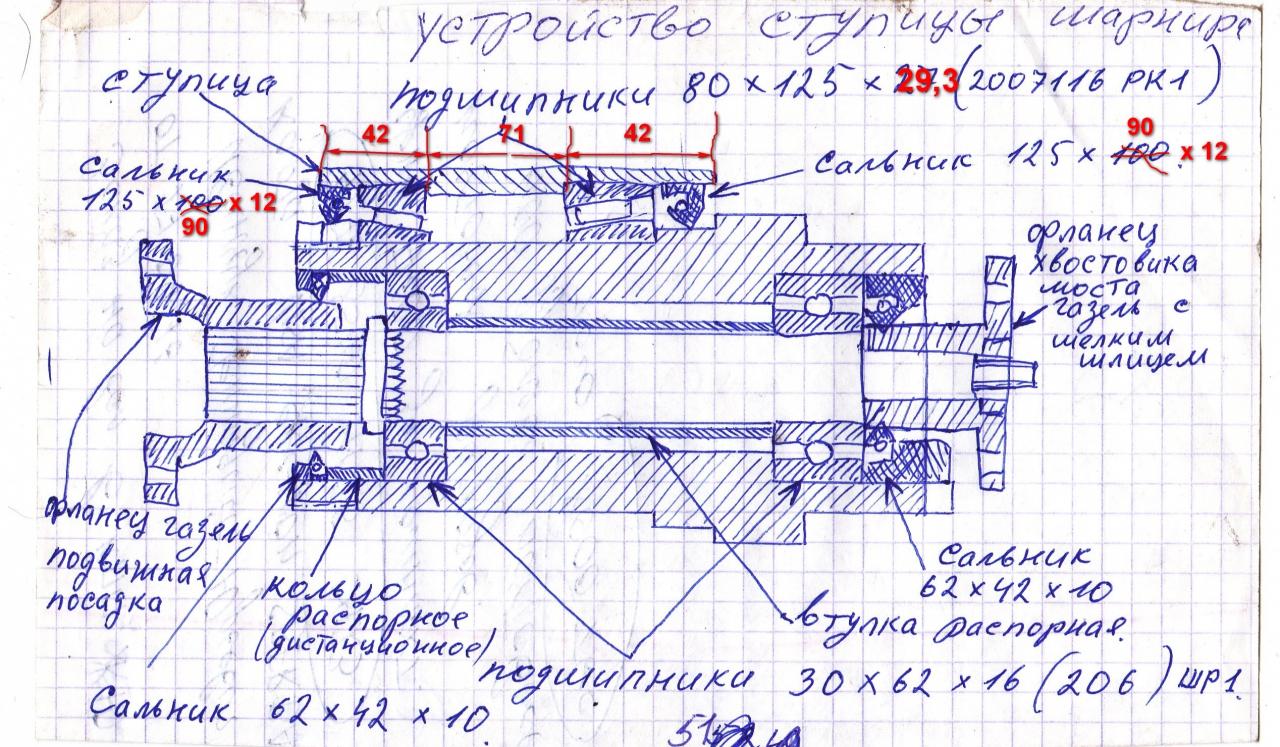 устройство ступицы шарнира
ступица
подшипники 80 x 125 x 29,3 (2007116 РК1)
42
71
42
сальник
125 x 100 x 12
90
90
сальник 125 x 100 x 12
фланец
хвостовика
моста
газель с
мелким
шлицем
фланец газель
подвижная
посадка
кольцо
распорное
(дистанционное)
сальник
62 x 42 x 10
втулка распорная.
подшипники 30 x 62 x 16 (206) шр1.
Сальник 62 x 42 x 10.